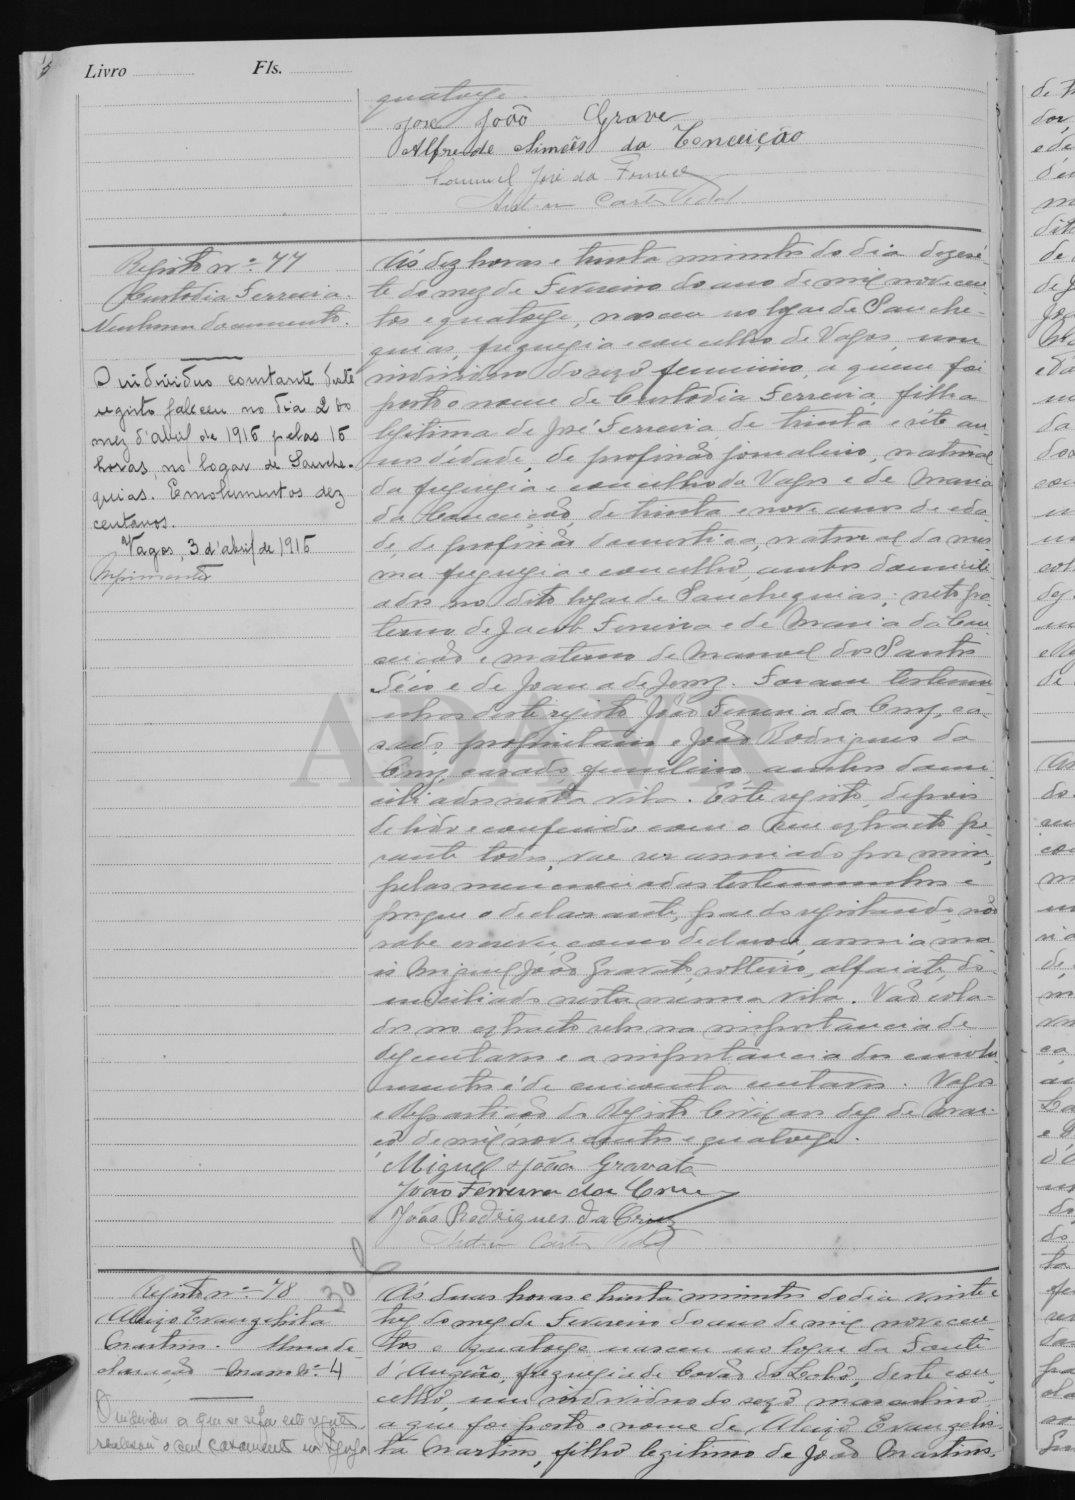 Livro Fls.
quatorze.
José João Grave
Alfrede Simões da Conceição
Manuel José da Fonseca
Registo nº 77
Custodia Ferreira.
Nenhum documento.
O individuo constante deste
registo faleceu no dia 2 do
mez d'abril de 1916 pelas 15
horas, no logar de Sanche-
quias. Emolumentos dez
centavos.
Vagos, 3 d'abril de 1916
Ás dez horas e trinta minutos do dia dezesé-
te do mez de Fevereiro do ano de mil novecen-
tos e quatorze, nasceu no logar de Sanche-
quias, freguezia e concelho de Vagos, um
individuo do sexo femenino, a quem foi
posto o nome de Custodia Ferreira, filha
legitima de José Ferreira, de trinta e séte an-
nos d'edade, de profissão jornaleiro, natural
da freguezia e concelho de Vagos e de Maria
da Conceição, de trinta e nove anos de eda-
de, de profissão domestica, natural da mes-
ma freguezia e concelho, ambos domicili-
ados no dito logar de Sanchequias; neto pa-
terno de Jacob Ferreira e de Maria da Con-
ceição e materno de Manoel dos Santos
e de Joana de Jesuz. Foram testemu-
nhas deste registo João Ferreira da Cruz, ca-
sado, proprietario e João Rodrigues da
Cruz, casado, ambos domi-
ciliados nesta vila. Este registo, depois
de lido e conferido com o seu extracto pe-
rante todos, vae ser assinado por mim,
pelas mencionadas testemunhas e
porque o declarante, pae do registando, não
sabe escrever, como declarou, assina ma-
is Miguel João Gravato, solteiro, alfaiate, do-
miciliado nesta mesma vila. Vão cola-
dos no extracto selos na importancia de
dez centavos e a importancia dos emolu-
mentos é de cincoenta centavos. Vagos
e Repartição do Registo Civil, aos dez de Mar-
ço de mil novecentos e quatorze.
Miguel João Gravato
João Ferreira da Cruz
João Rodrigues da Cruz
Registo nº 78
30
Aleixo Evangelista
Martins. Uma de-
claração - Masso nº 4
O individuo a que se refere este registo
realisou o seu casamento na Igreja
Ás duas horas e trinta minutos do dia vinte e
trez do mez de Fevereiro do ano de mil novecen-
tos e quatorze nasceu no logar da Fonte
d'Angeão, freguezia de Covão do Lobo, deste con-
celho, um individuo do sexo masculino
a que foi posto o nome de Aleixo Evangelis-
ta Martins, filho legitimo de João Martins,
ADAVR